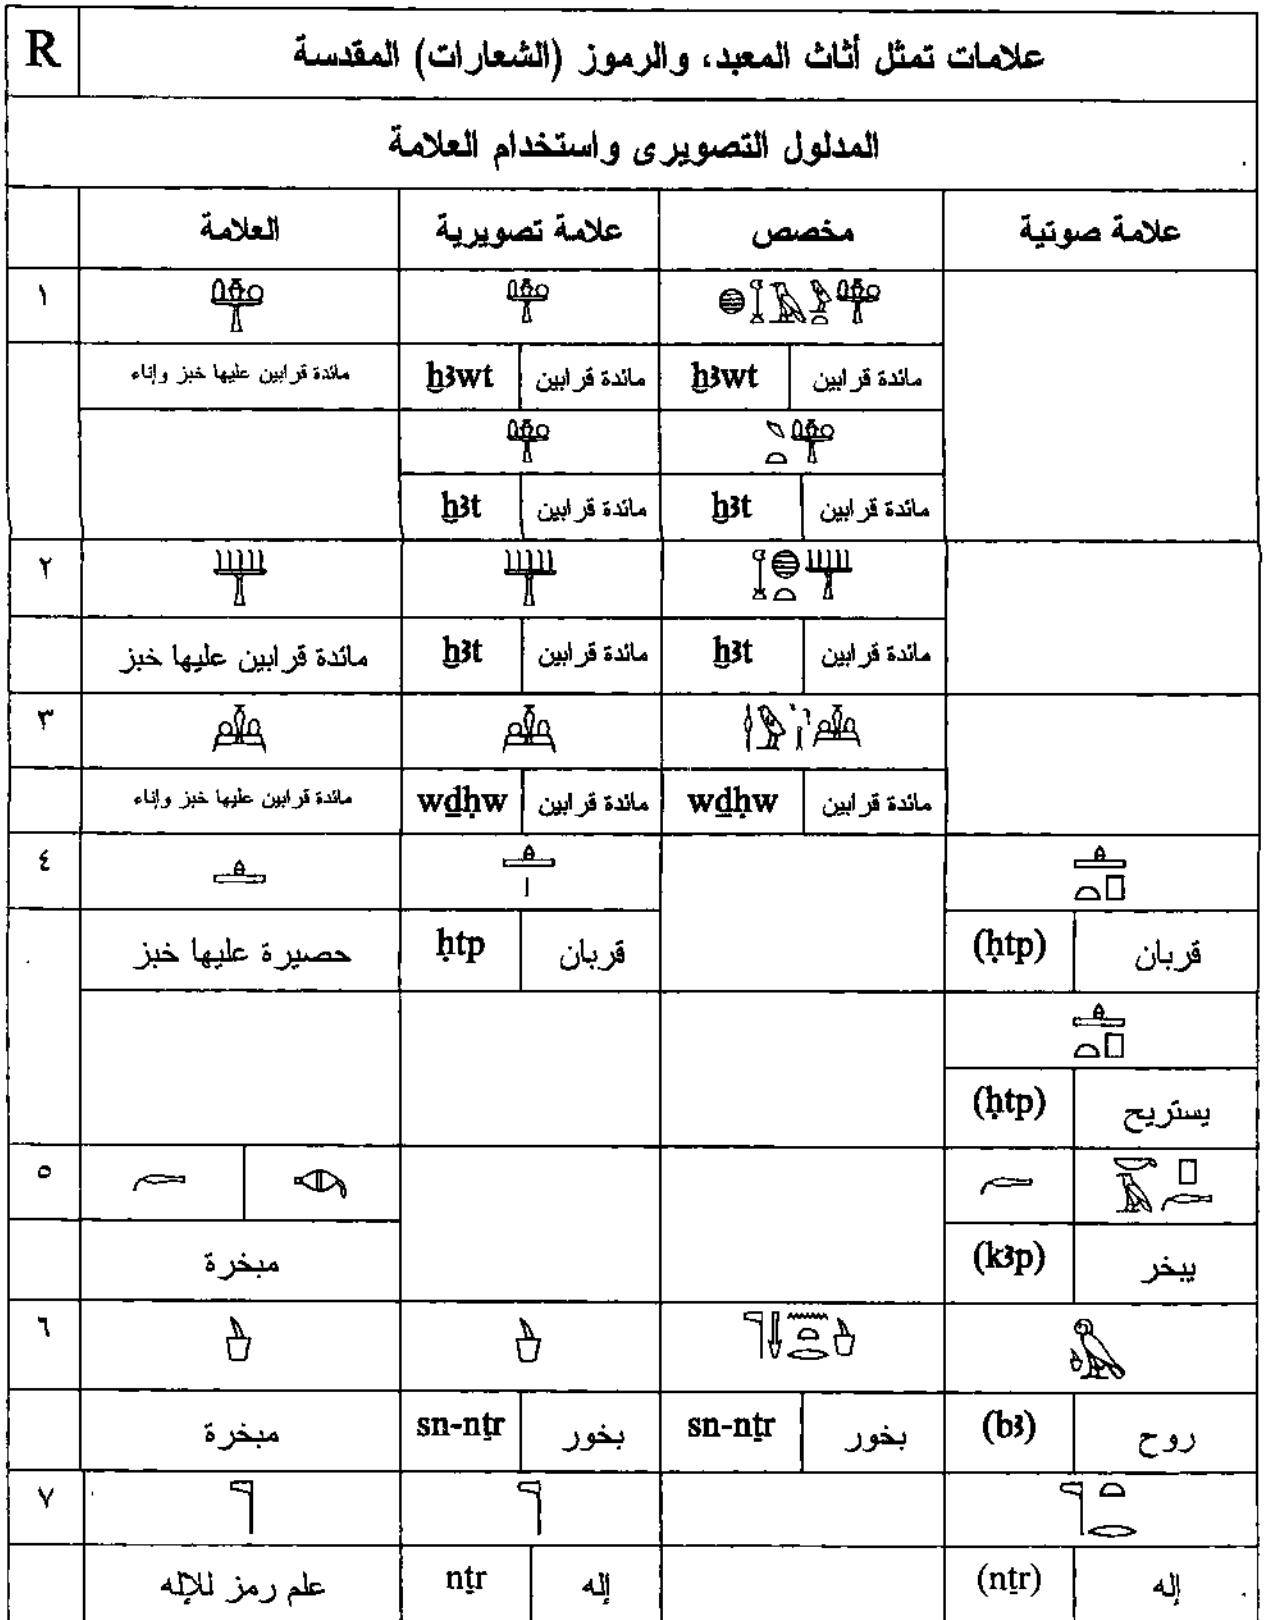 R علامات تمثل أثاث المعبد، والرموز (الشعارات) المقدسة
المدلول التصويرى واستخدام العلامة
العلامة علامة تصويرية مخصص علامة صوتية
١
مائدة قرابين عليها خبز وإناء ẖꜣwt مائدة قرابين ẖꜣwt مائدة قرابين
ẖꜣt مائدة قرابين ẖꜣt مائدة قرابين
٢
مائدة قرابين عليها خبز ẖꜣt مائدة قرابين ẖꜣt مائدة قرابين
٣
مائدة قرابين عليها خبز وإناء wḏḥw مائدة قرابين wḏḥw مائدة قرابين
٤
حصيرة عليها خبز ḥtp قربان (ḥtp) قربان
(ḥtp) يستريح
٥
مبخرة (kꜣp) يبخر
٦
مبخرة sn-nṯr بخور sn-nṯr بخور (bꜣ) روح
٧
علم رمز للإله nṯr إله (nṯr) إله